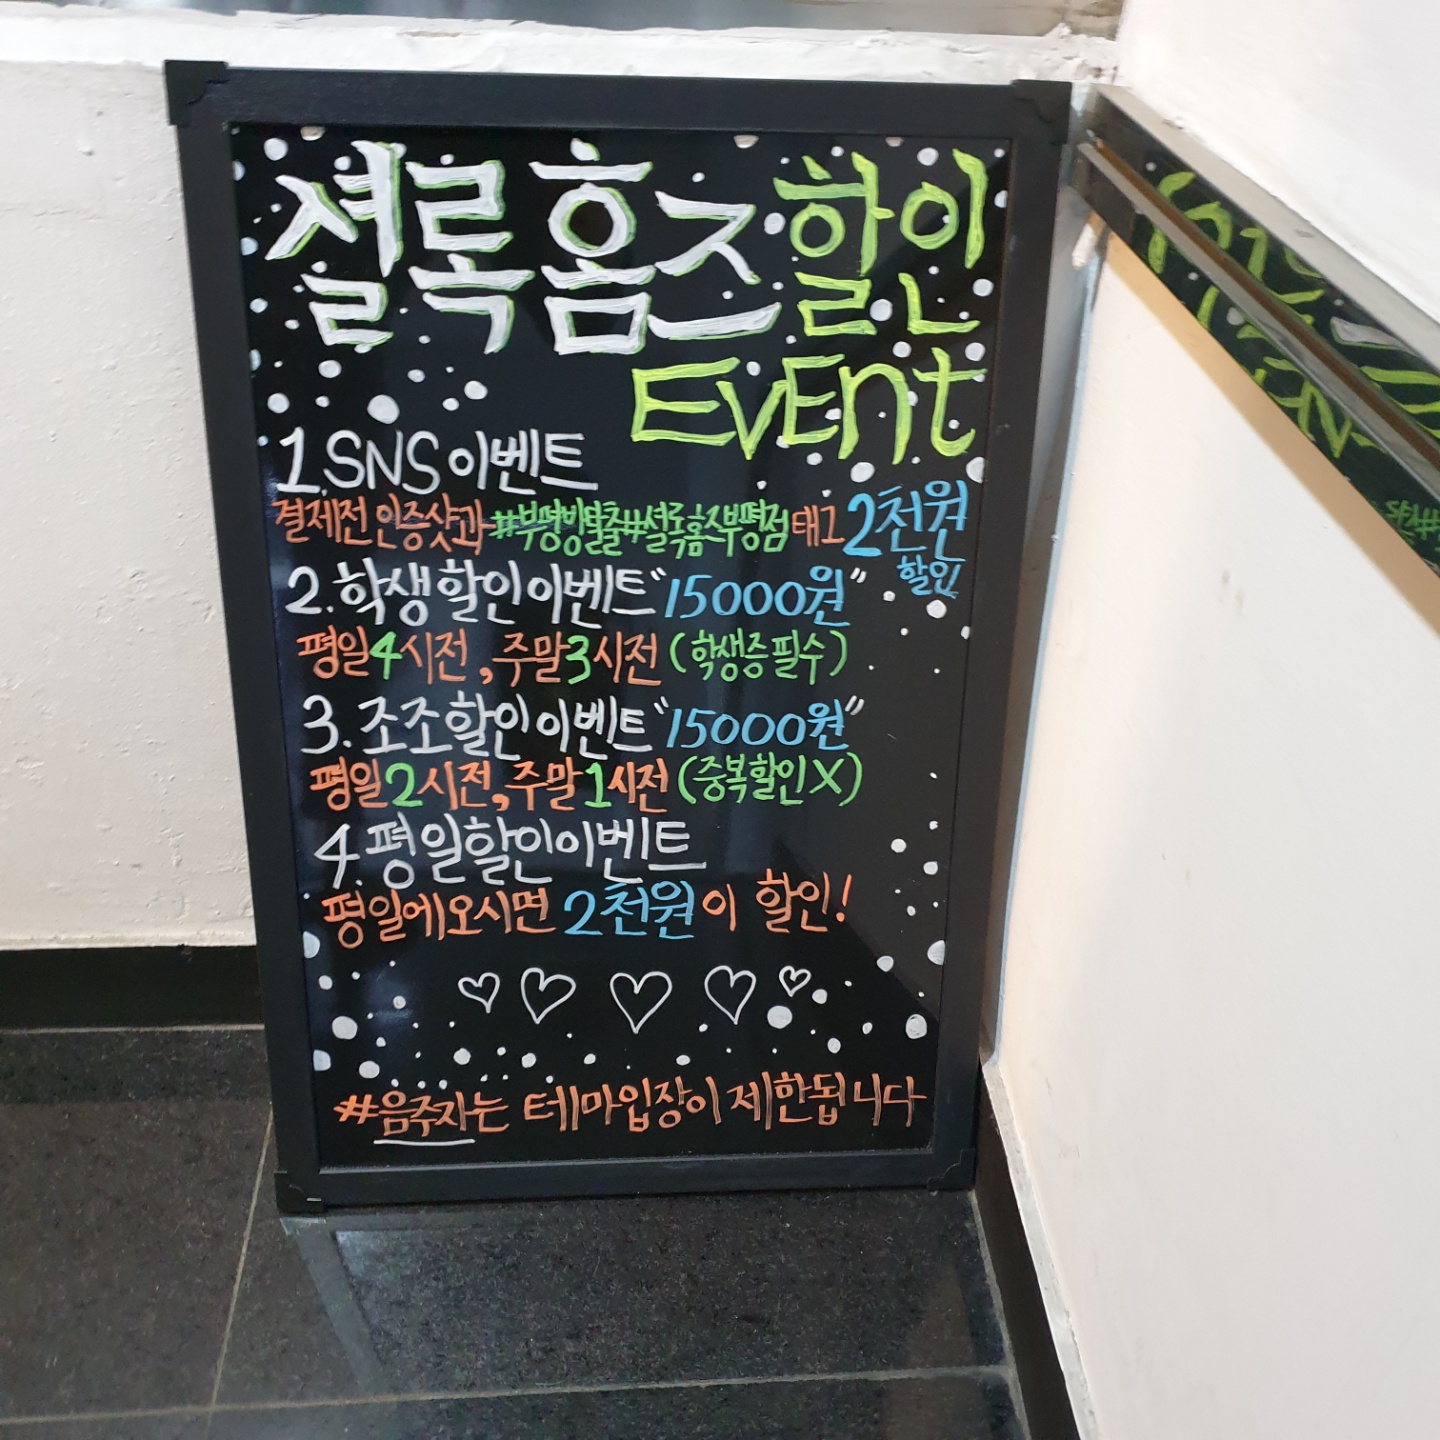 셜록홈즈할인
EVENT
1.SNS이벤트
결제전인증샷과#부평방탈출#셜록홈즈부평점태그2천원
할인
2.학생할인이벤트"15000원"
평일4시전,주말3시전(학생증필수)
3.조조할인이벤트"15000원"
평일2시전,주말1시전(중복할인X)
4.평일할인이벤트
평일에오시면 2천원이 할인!
#음주자는 테마입장이 제한됩니다